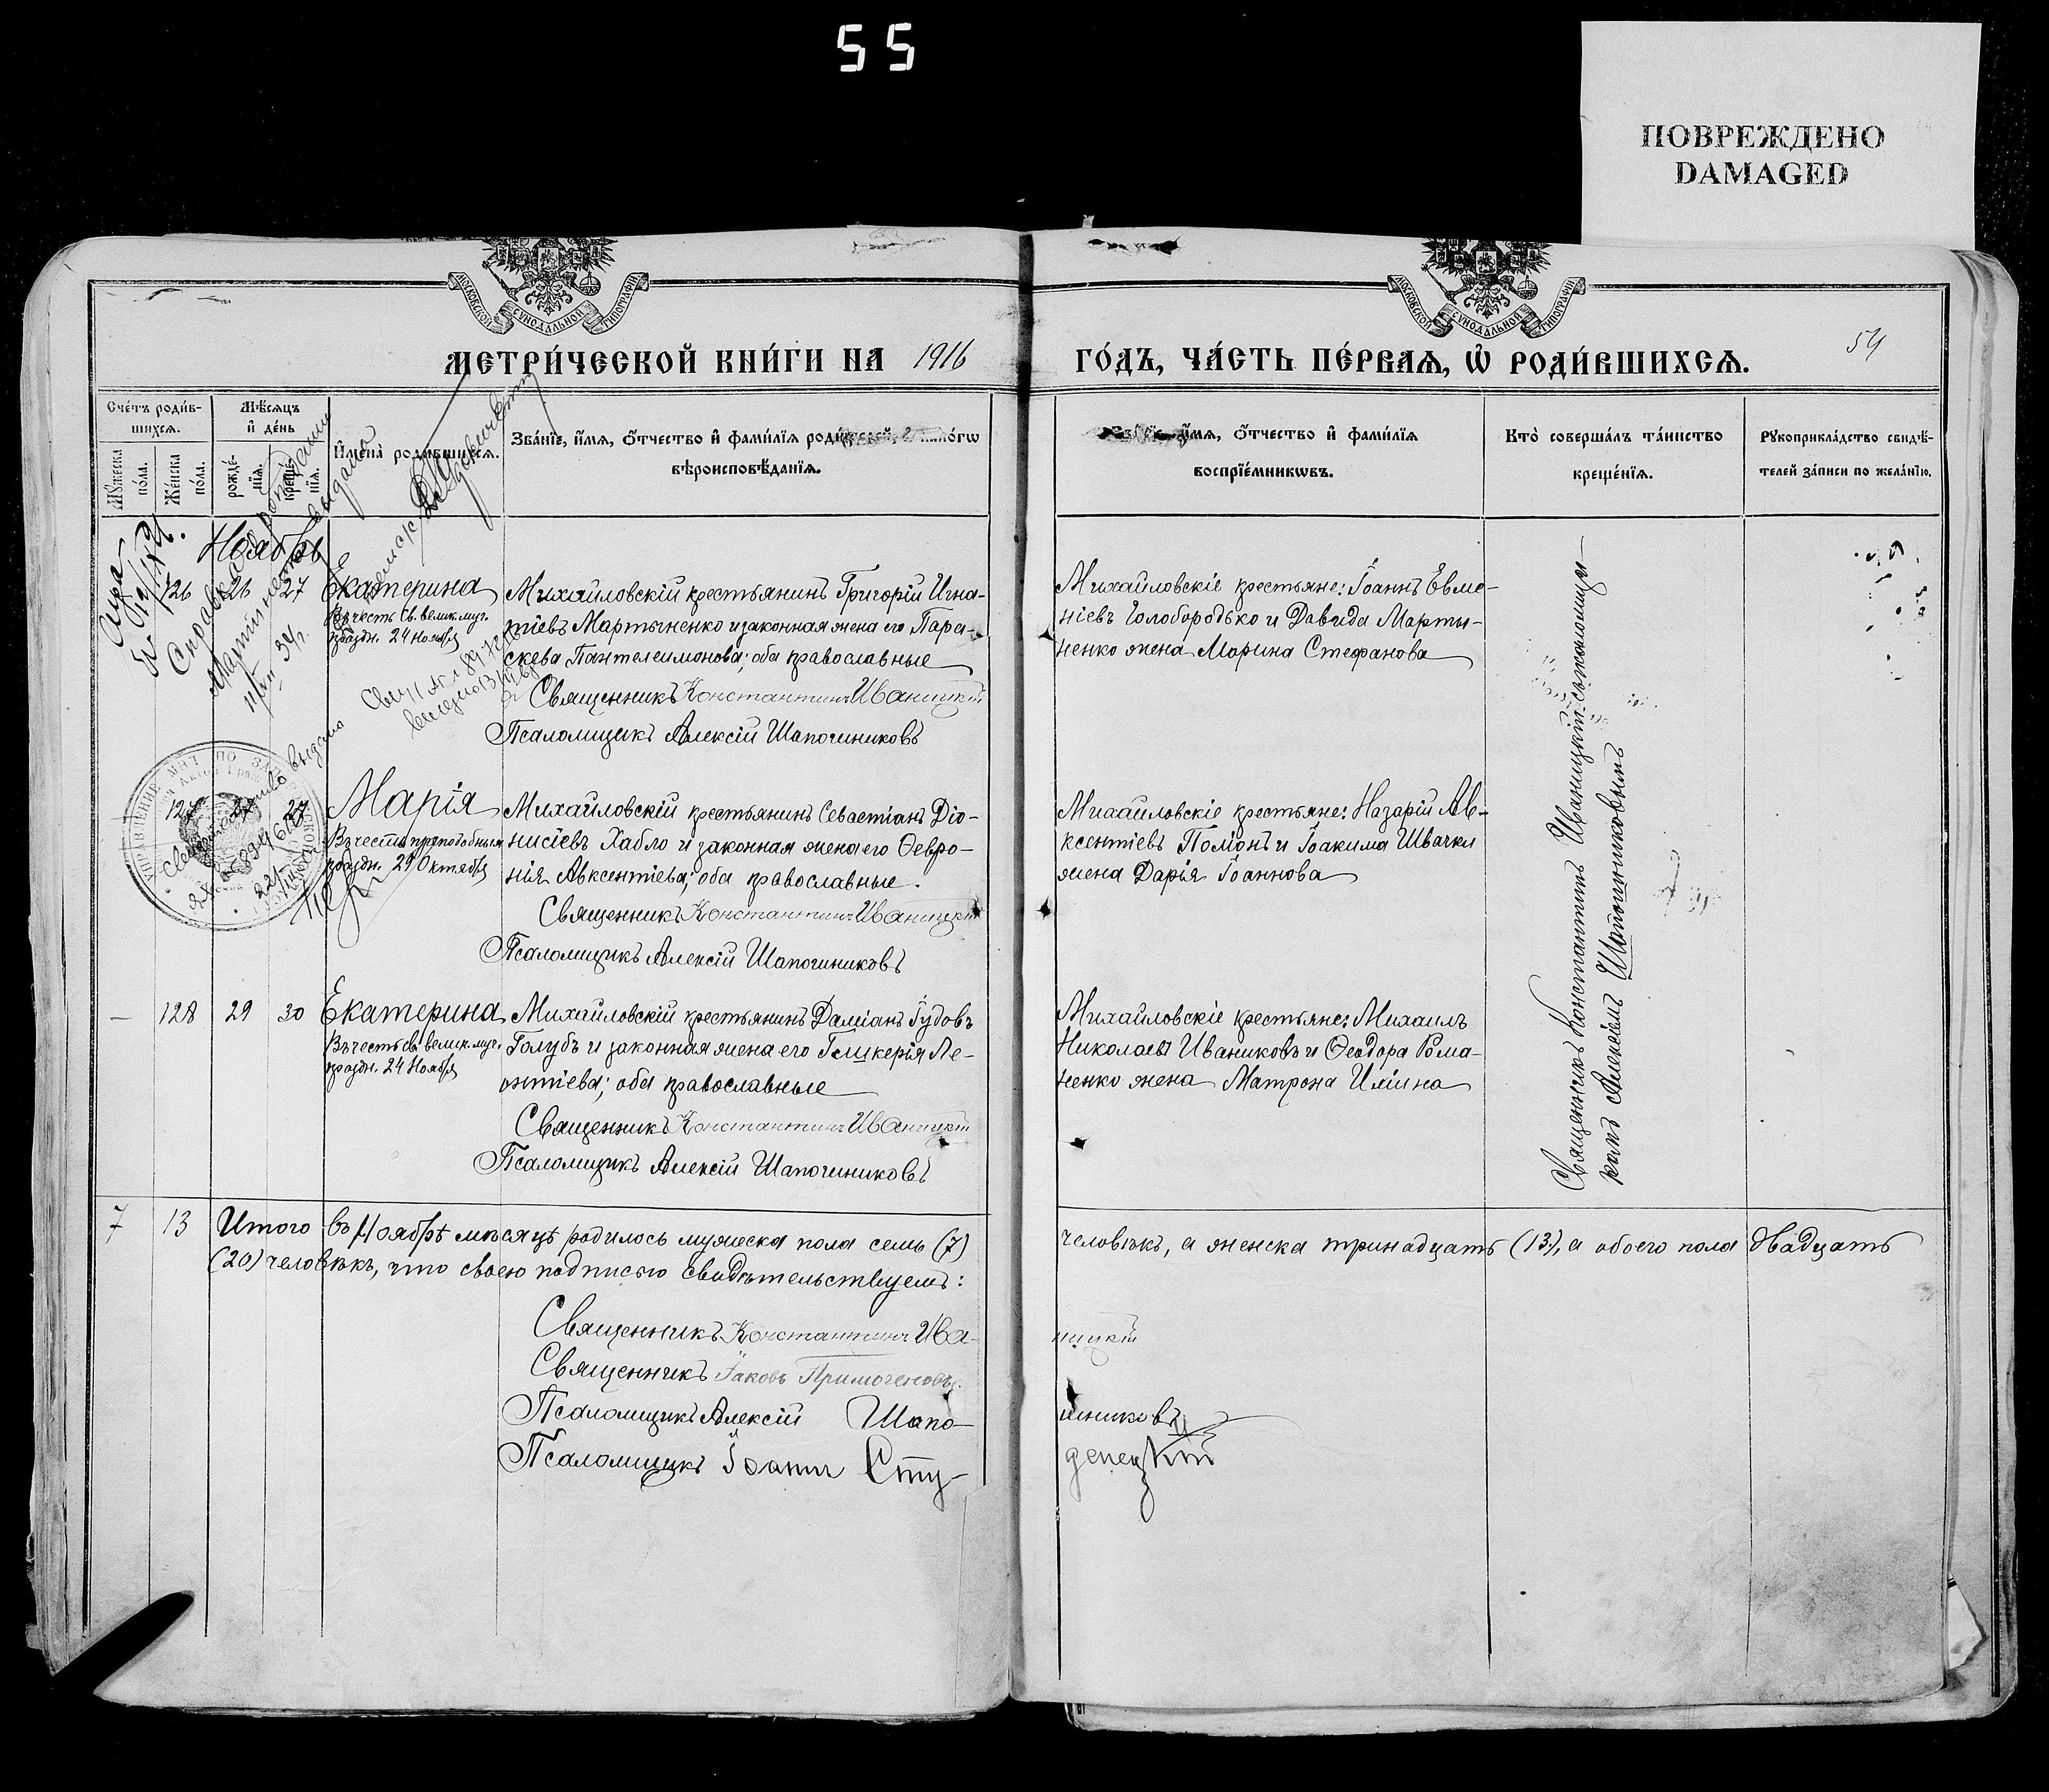 55
ПОВРЕЖДЕНО
DAMAGED
МОСКОВСКОЙ СѴНОДАЛЬНОЙ ТИПОГРАФІИ
МОСКОВСКОЙ СѴНОДАЛЬНОЙ ТИПОГРАФІИ
МЕТРИ́ЧЕСКОЙ КНИ́ГИ НА 1916 ГО́ДЪ, ЧА́СТЬ ПЕ́РВАѦ, Ѡ҆ РОДИ́ВШИХСѦ.
54
Сче́тъ роди́в-
шихсѧ.
Мꙋ́жеска по́ла.
Же́нска по́ла.
Мѣ́сѧцъ
и҆ де́нь
рожде́-
нїѧ.
креще́-
нїѧ.
И҆мена̀ роди́вшихсѧ.
Зва́нїе, и҆́мѧ, ѻ҆́тчество и҆ фами́лїѧ роди́телей, и҆ како́гѡ
вѣроисповѣ́данїѧ.
Зва́нїе, и҆́мѧ, ѻ҆́тчество и҆ фами́лїѧ
воспрїе́мникѡвъ.
Кто̀ соверша́лъ та́инство
креще́нїѧ.
Рꙋкоприкла́дство свидѣ́-
телей за́писи по жела́нїю.
Ноябрь
126 26 27 Екатерина
Въ честь Св. велик.муч.
праздн. 24 Ноября
Михайловскій крестьянинъ Григорій Игна-
тіевъ Мартыненко и законная жена его Пара-
скева Пантелеимонова; оба православные
Священникъ Константинъ Иваницкій
Псаломщикъ Алексій Шапошниковъ
Михайловскіе крестьяне: Іоаннъ Евме-
ніевъ Голобородько и Давида Марты-
ненко жена Марина Стефанова
Справка
выдана
Свидетельство выдано
127 27 Марія
Въ честь преподобныя
праздн. 29 Октября
Михайловскій крестьянинъ Севастіанъ Діо-
нисіевъ Хабло и законная жена его Февро-
нія Авксентіева; оба православные.
Священникъ Константинъ Иваницкій
Псаломщикъ Алексій Шапошниковъ
Михайловскіе крестьяне: Назарій Ав-
ксентіевъ Поліонъ и Іоакима Швачки
жена Дарія Іоаннова
— 128 29 30 Екатерина
Въ честь св. велик.муч.
праздн. 24 Ноября
Михайловскій крестьянинъ Даміанъ Іудовъ
Голубъ и законная жена его Гликерія Ле-
онтіева; оба православные
Священникъ Константинъ Иваницкій
Псаломщикъ Алексій Шапошниковъ
Михайловскіе крестьяне: Михаилъ
Николаевъ Иваниковъ и Феодора Рома-
ненко жена Матрона Иліина
Священникъ Константинъ Иваницкій съ псаломщи-
комъ Алексіемъ Шапошниковымъ
7 13 Итого въ Ноябрѣ мѣсяцѣ родилось мужеска пола семь (7) человѣкъ, а женска тринадцать (13), а обоего пола двадцать
(20) человѣкъ, что своею подписью свидѣтельствуемъ:
Священникъ Константинъ Иваницкій
Священникъ Іаковъ Примоченовъ.
Псаломщикъ Алексій Шапошниковъ
Псаломщикъ Іоаннъ Студенецкій